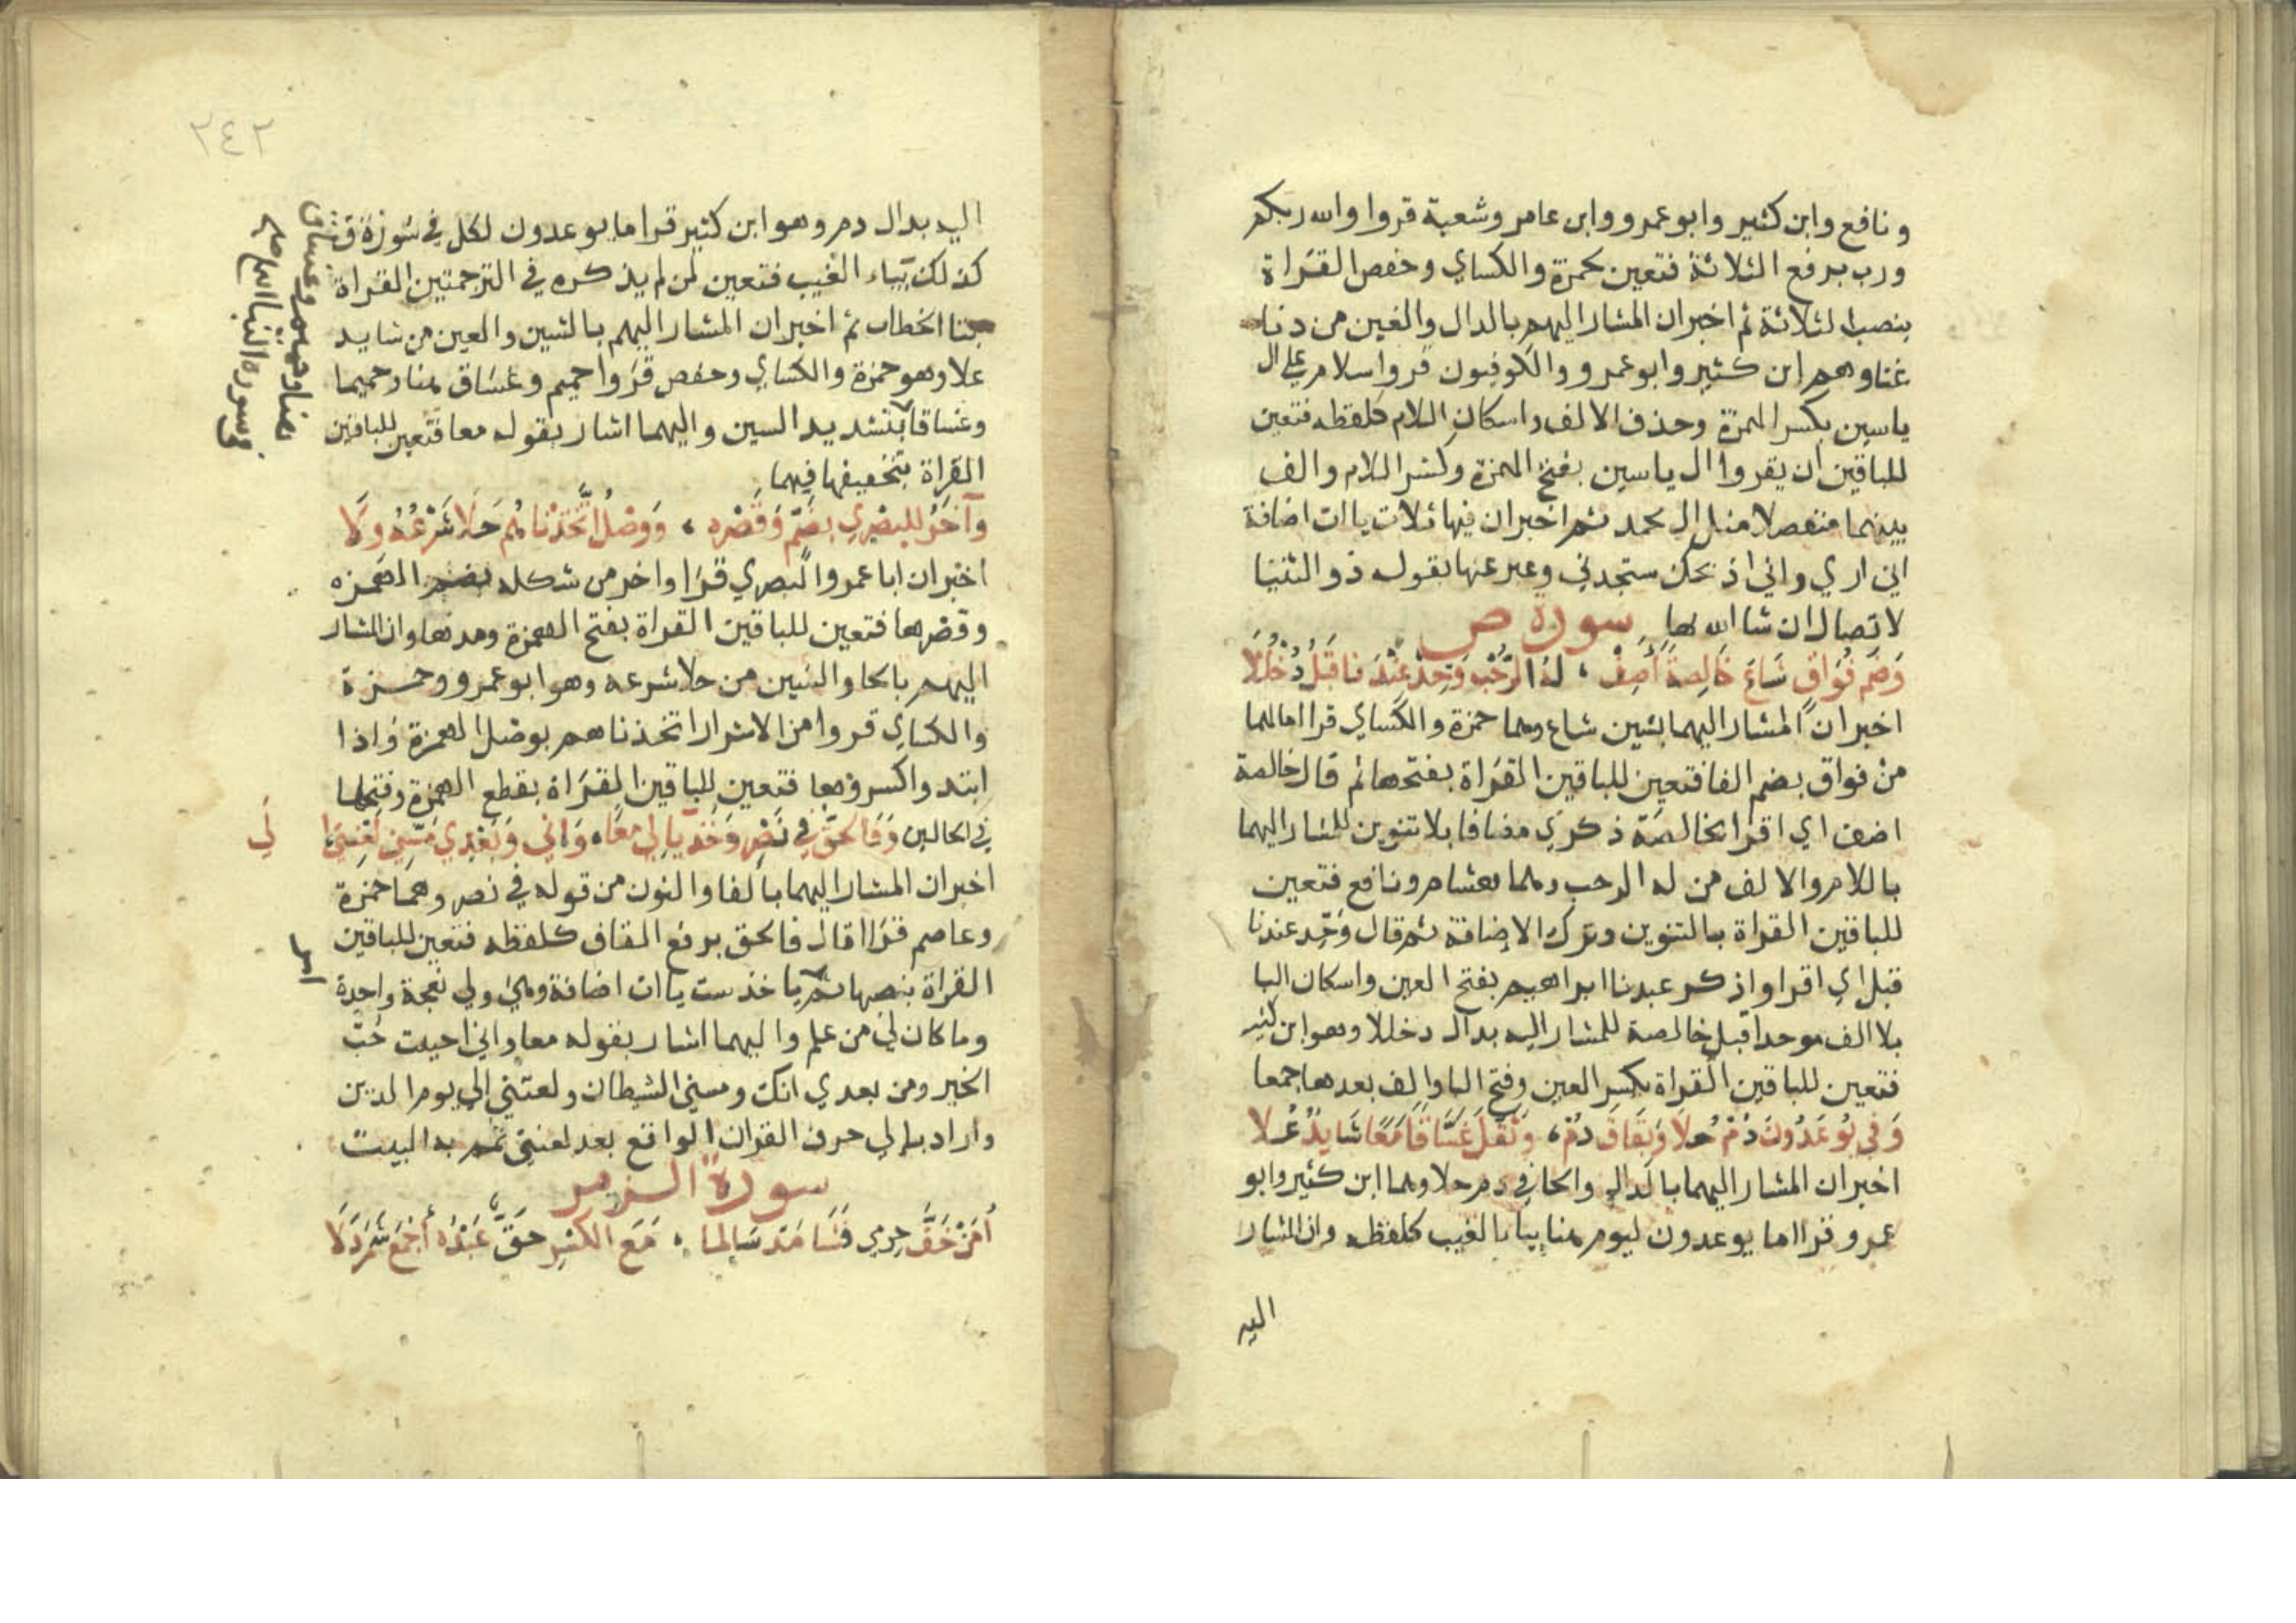 ونافع وابن كثير وابو عمرو وابن عامر وشعبة قروا والله ربكم
ورب برفع الثلاثة فتعين لحمزة والكساي وحفص القراة
بنصب الثلاثة ثم اخبر ان المشار اليهم بالدال والغين من دنا
غنا وهم ابن كثير وابو عمرو والكوفيون قروا سلام على ال
ياسين بكسر الهمزة وحذف الالف واسكان اللام كلفظه فتعين
للباقين ان يقروا ال ياسين بفتح الهمزة وكسر اللام والف
بينهما منفصلا مثل ال محمد ثم اخبر ان فيها ثلاث يا ات اضافة
اني اري واني اذبحك ستجدني وعبر عنها بقوله ذو الثنيا
لاتصال ان شا الله بها سورة ص
وَضَم فُوَاقٍ شَاعَ خَالِصَة أَضِفْ ، لهُ الرَّحْب وَحِّدْ عَبْدَنا قَبْلُ دُخْلُلَا
اخبر ان المشار اليهما بشين شاع وهما حمزة والكساي قراا ما لها
من فواق بضم الفا فتعين للباقين القراة بفتحها ثم قال خالصة
اضف اي اقرا بخالصة ذكري مضافا بلا تنوين للمشار اليهما
باللام والالف من له الرحب وهما هشام ونافع فتعين
للباقين القراة بالتنوين وترك الاضافة ثم قال وَحِّد عبدنا
قبل اي اقرا واذكر عبدنا ابراهيم بفتح العين واسكان البا
بلا الف موحدا قبل خالصة للمشار اليه بدال دخللا وهو ابن كثير
فتعين للباقين القراة بكسر العين وفتح البا والف بعدها جمعا
وَفِي يُوعَدُونَ دُمْ حُلًا وَبِقَافَ دُمْ ، وَثَقَّلَ غَسَّاقًا مَعًا شَايِدٌ عُلَا
اخبر ان المشار اليهما بالدال والحا في دم حلا وهما ابن كثير وابو
عمرو قراا ما يوعدون ليوم هنا بيا الغيب كلفظه وان المشار
اليه
٢٤٢
اليه بدال دم وهو ابن كثير قرا ما يوعدون لكل في سورة ق
كذلك بياء الغيب فتعين لمن لم يذكره في الترجمتين القراة
بتا الخطاب ثم اخبر ان المشار اليهم بالشين والعين من شايد
علا وهو حمزة والكساي وحفص قروا حميم وغساق هنا وحميما
وغساقا بتشديد السين واليهما اشار بقوله معا فتعين للباقين
القراة بتخفيفها فيهما
وَآخَرُ للبصْرِي بضَمّ وَقَصْره ، وَوصْلُ اتَّخَذْنَاهُم حَلَا شَرْعُهُ وِلَا
اخبر ان ابا عمرو البصري قرا واخر من شكله بضم الهمزه
وقصرها فتعين للباقين القراة بفتح الهمزة ومدها وان المشار
اليهم بالحا والشين من حلا شرعه وهو ابو عمرو وحمزة
والكساي قروا من الاشرار اتخذناهم بوصل الهمزة واذا
ابتدوا كسروها فتعين للباقين القراة بقطع الهمزة وفتحها
في الحالين وَفَالحقّ في نَصْرٍ وَخُذ يا لي معًا ، وَاني وَبَعْدِي مَسَّنِي لعْنتي الي
اخبر ان المشار اليهما بالفا والنون من قوله في نصر وهما حمزة
وعاصم قراا قال فالحق برفع القاف كلفظه فتعين للباقين
القراة بنصبها ثم يا خذ ست يا ات اضافة وهي ولي نعجة واحدة
وما كان لي من علم واليهما اشار بقوله معا واني احببت حُبّ
الخير ومن بعدي انك ومسني الشيطان ولعنتي الي يوم الدين
واراد بالي حرف القران الواقع بعد لعنتي تمم به البيت
سورة الزمر
أَمَنْ خَفَّ حِرمي فَشَا مَدَّ سَالِمًا ، مَعَ الكَسْرِ حَقٌّ عَبْدَهُ أجْمَعْ شَمَرْدَلَا